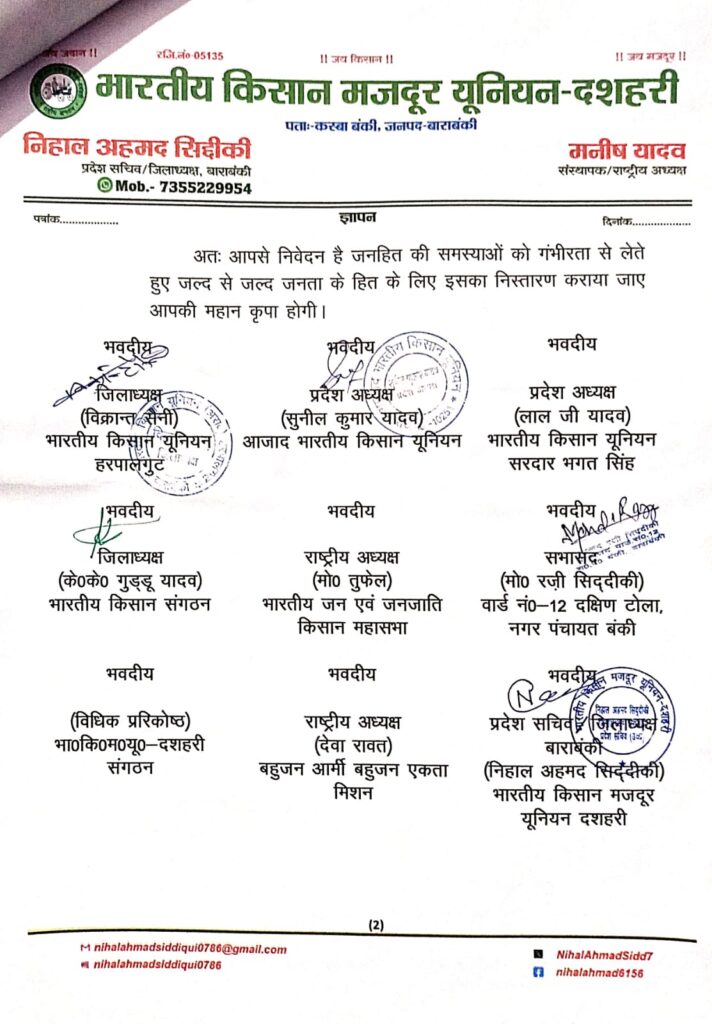 जय जवान !!
रजि.नं०-05135
!! जय किसान !!
!! जय मजदूर !!
भारतीय किसान मजदूर यूनियन-दशहरी
पताः-कस्बा बंकी, जनपद-बाराबंकी
निहाल अहमद सिद्दीकी
मनीष यादव
प्रदेश सचिव/जिलाध्यक्ष, बाराबंकी
संस्थापक/राष्ट्रीय अध्यक्ष
Mob.- 7355229954
पत्रांक...................
ज्ञापन
दिनांक...................
अतः आपसे निवेदन है जनहित की समस्याओं को गंभीरता से लेते
हुए जल्द से जल्द जनता के हित के लिए इसका निस्तारण कराया जाए
आपकी महान कृपा होगी।
भवदीय
जिलाध्यक्ष
(विक्रान्त सैनी)
भारतीय किसान यूनियन
हरपालगुट
भवदीय
प्रदेश अध्यक्ष
(सुनील कुमार यादव)
आजाद भारतीय किसान यूनियन
भवदीय
प्रदेश अध्यक्ष
(लाल जी यादव)
भारतीय किसान यूनियन
सरदार भगत सिंह
भवदीय
जिलाध्यक्ष
(के0के0 गुड्डू यादव)
भारतीय किसान संगठन
भवदीय
राष्ट्रीय अध्यक्ष
(मो0 तुफेल)
भारतीय जन एवं जनजाति
किसान महासभा
भवदीय
सभासद
(मो0 रज़ी सिद्दीकी)
वार्ड नं0–12 दक्षिण टोला,
नगर पंचायत बंकी
भवदीय
(विधिक प्ररिकोष्ठ)
भा0कि0म0यू0–दशहरी
संगठन
भवदीय
राष्ट्रीय अध्यक्ष
(देवा रावत)
बहुजन आर्मी बहुजन एकता
मिशन
भवदीय
प्रदेश सचिव/जिलाध्यक्ष
बाराबंकी
(निहाल अहमद सिद्दीकी)
भारतीय किसान मजदूर
यूनियन दशहरी
भारतीय किसान मजदूर यूनियन-दशहरी
(2)
nihalahmadsiddiqui0786@gmail.com
nihalahmadsiddiqui0786
NihalAhmadSidd7
nihalahmad6156